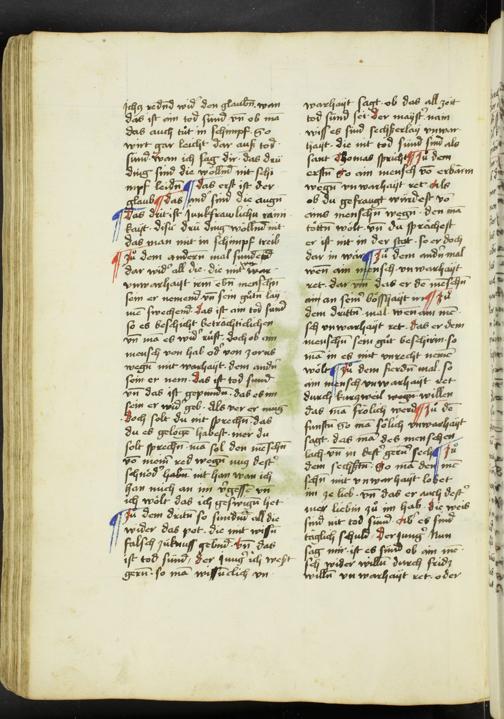 ichs redend wid' den glaubn. wan
das ist ain tod sund vn ob ma
das auch tut in schimpf. So
wirt gar leicht dar aus tod
sund. wan ich sag dir das drü
ding sind die wöllent nit schi
mpf leiden ¶ das erst ist der
glaub ¶ das sind die augn
¶ das drit ist Junkfrawlichu rain
kayt. disü drü ding wöllnd nit
das man mit in schimpf treib
¶ Zu dem andern mal sunden
dar wid' all die. die mit
vnwarhayt irem ebn menschn
sein er nement vn sein gut lay
das ist ain tod sund
so es beschicht betrachtlichen
vn ma es wid' ruft. doch ob ain
mensch von haß od' von zorns
wegn mit warhayt. dem andn
sein er nem. das ist tod sund
vn das ist gepunden. das es im
sein er wid' geb. Als ver er mug
doch solt du nit sprechn. das
du es gelogē habest. mer du
solt sprechn. ma sol den meschn
vo meinn red wegn nüg dest'
schnöd' habn. mit han wan ich
han mich an im v'gesse vn
ich wölt das ich geswign het
¶ Zu dem dritn so sundend all die
wider das pot. die mit wissn
falsch züknuss gebnd. vn das
ist tod sund. der Jung' ich west
gern. so ma wissenclich vn
warhayt sagt. ob das all zeit
tod sund sei. der mayst' nain
wiss es sind sechserlay vnwar
hayt. die nit tod sund sind als
sant thomas spricht ¶ Zu dem
erstn So ain mensch vo erbarm
wegn vnwarhayt ret. Als
ob du gefragt würdest vō
ains menschn wegn. den mā
tottn wölt vn du sprächest
er ist nit in der stat. so er doch
dar in wär ¶ Zu dem andn mal
wen ain mensch vnwarhayt
ret. dar vm das er de meschn
ain an seinr boßhayt irr ¶ Zu
dem drittn mal. wen ain me
sch vnwarhayt ret. das er dem
menschn sein gut beschirm. so
ma in es mit vnrecht neme
wölt ¶ Zu dem fierdn mal. so
ain mensch vnwarhayt ret
durch kurzweil wegn. willen
das mā frölich werd ¶ Zu de
funftn So mā sölich vnwarhayt
sagt. das mā des menschen
¶ Zu
dem sechstn. So mā den me
schn mit vnwarhayt lobet
im ze lieb. vn das er auch dest'
mer liebin zu im hab. die weis
sind nit tod sund. Ab' es sind
täglich schuld. der Jung' Nun
sag mir. ist es sund ob ain me
sch wider willn durch fridz
willn vnwarhayt ret. oder